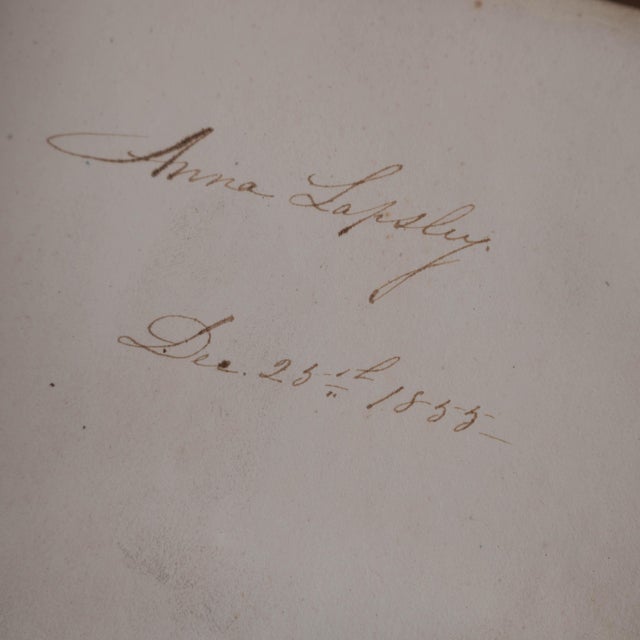 Anna Lapsley
Dec. 25th 1853